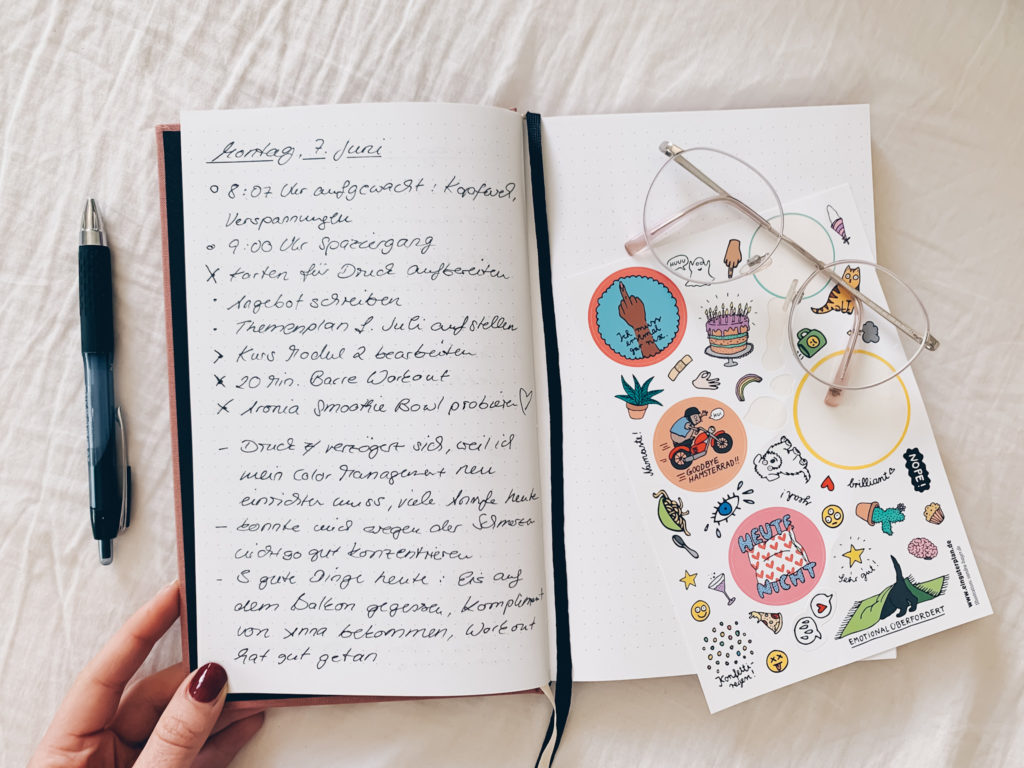 Montag, 7. Juni
o 8:07 Uhr aufgewacht: Kopfweh,
Verspannungen
o 9:00 Uhr Spaziergang
x Karten für Druck aufbereiten
· Angebot schreiben
· Themenplan f. Juli aufstellen
> Kurs Modul 2 bearbeiten
x 20 Min. Barre Workout
x Aronia Smoothie Bowl probieren ♡
- Druck verzögert sich, weil ich
mein Color Management neu
einrichten muss, viele Anrufe heute
- konnte mich wegen der Schmerzen
nicht so gut konzentrieren
- 3 gute Dinge heute: Eis auf
dem Balkon gegessen, Kompliment
von Anna bekommen, Workout
hat gut getan
HUUU
NOO
Ich muss
erstmal
gar nix
HUI
GOODBYE
HAMSTERRAD!!
Namaste!
brilliant
NOPE!
Yeah!
HEUTE
NICHT
Sehr gut!
EMOTIONAL ÜBERFORDERT
Konfetti-
regen!
www.eingutetplan.de